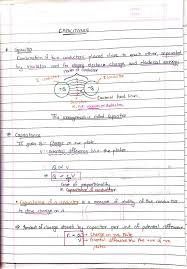 CAPACITANCE
* Capacitor
Combination of two conductors placed close to each other, separated
by insulator used for storing electric charge and electrical energy.
I conductor
II conductor
This arrangement is called Capacitor
* Capacitance
If given Q = Charge on one plate
V = Potential difference b/w the plates
Q ∝ V
Q = CV
Const. of proportionality
Capacitance of conductor
* Capacitance of a conductor is a measure of ability of the conductor
to store charge on it
→ Amount of charge stored by capacitor per unit of potential difference
C = Q/V
→ Charge on one plate
→ Potential difference b/w the
plates